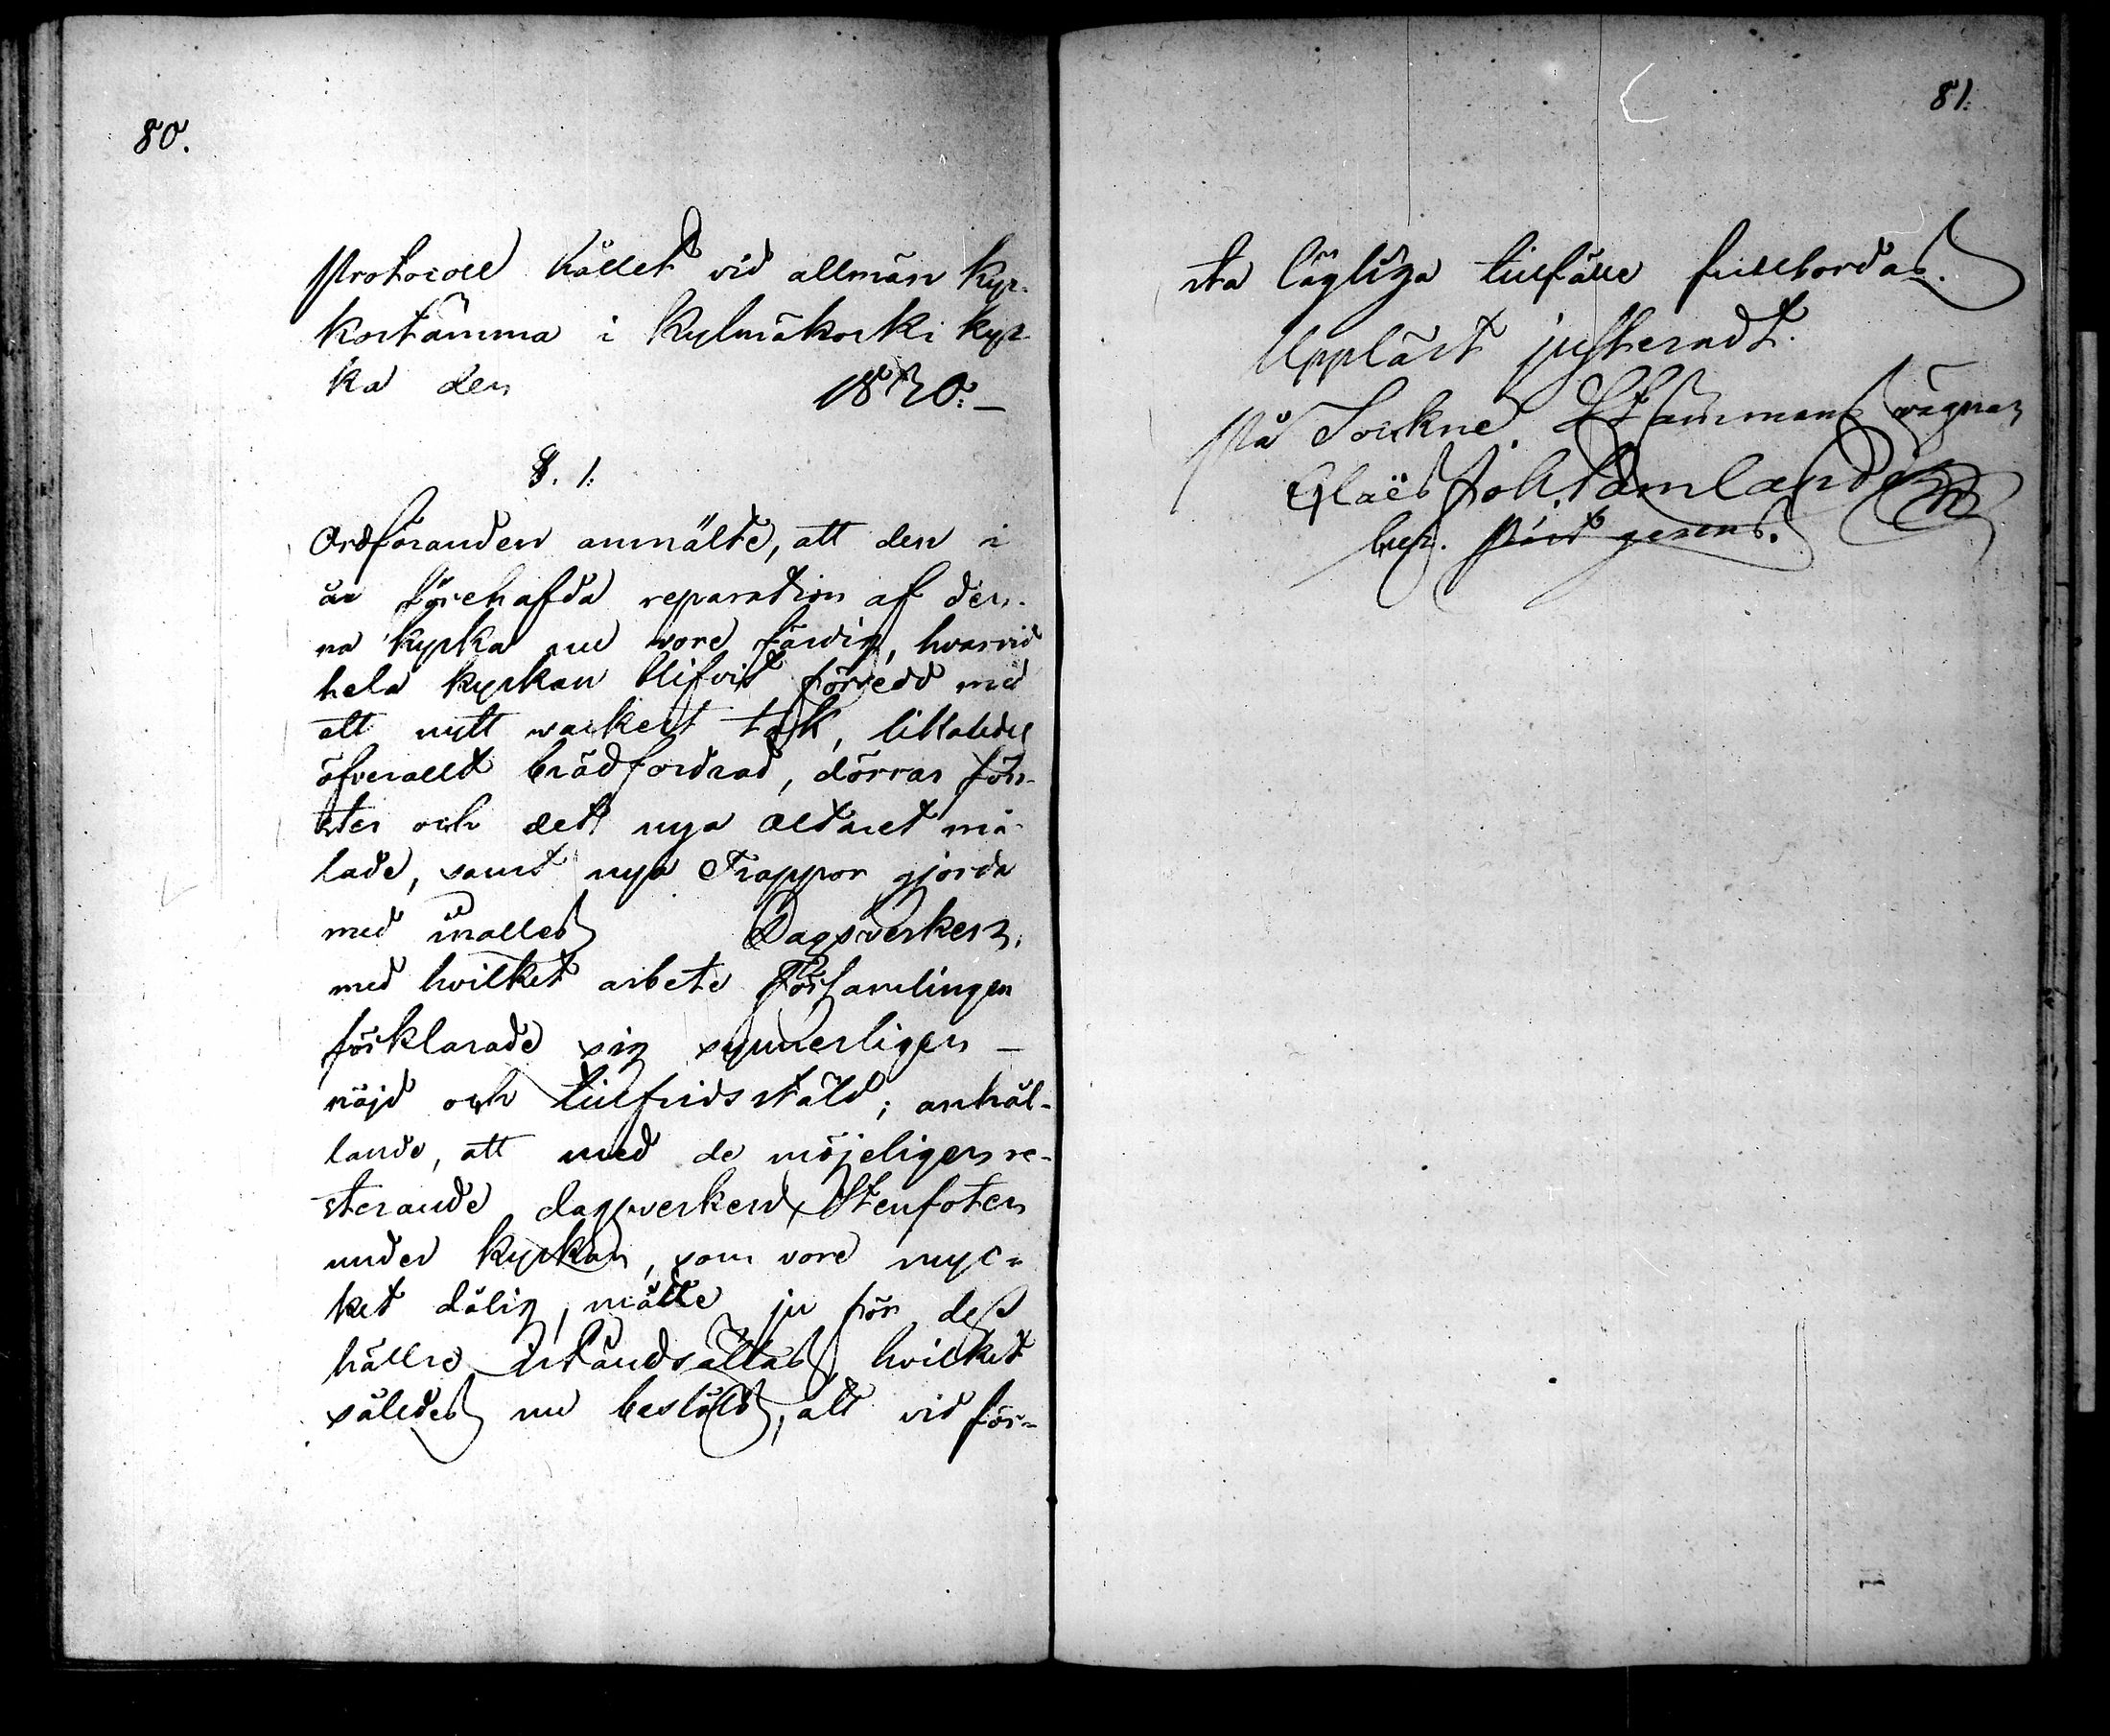 80.
Protocoll hållet vid allmän Kyr-
kostämma i Kylmäkoski kyr
ka den 1870. —
§. 1.
Ordföranden anmälte, att den i
år förehafda reparation af den-
na kyrka nu vore färdig, hvarvid
hela kyrkan blifvit försedd med
ett nytt vackert tak, likaledes
öfverallt brädfordrad, dörrar fön-
ster och det nya altaret må-
lade, samt nya Trappor gjorda
med inalles Dagsverken,
med hvilket arbete Församlingen
förklarade sig synnerligen —
nöjd och tillfridsstäld; anhål-
lande, att med de möjeligen re-
sterande dagsverken Stenfoten
under kyrkan, som vore myc-
ket dålig, måtte ju för dess
hällre iståndsättas, hvilket
således nu beslöts, att vid för-
81.
sta lägliga tillfälle fullbordas.
Uppläst justeradt.
På Sockne Stämmans vägnar
Claës Joh.